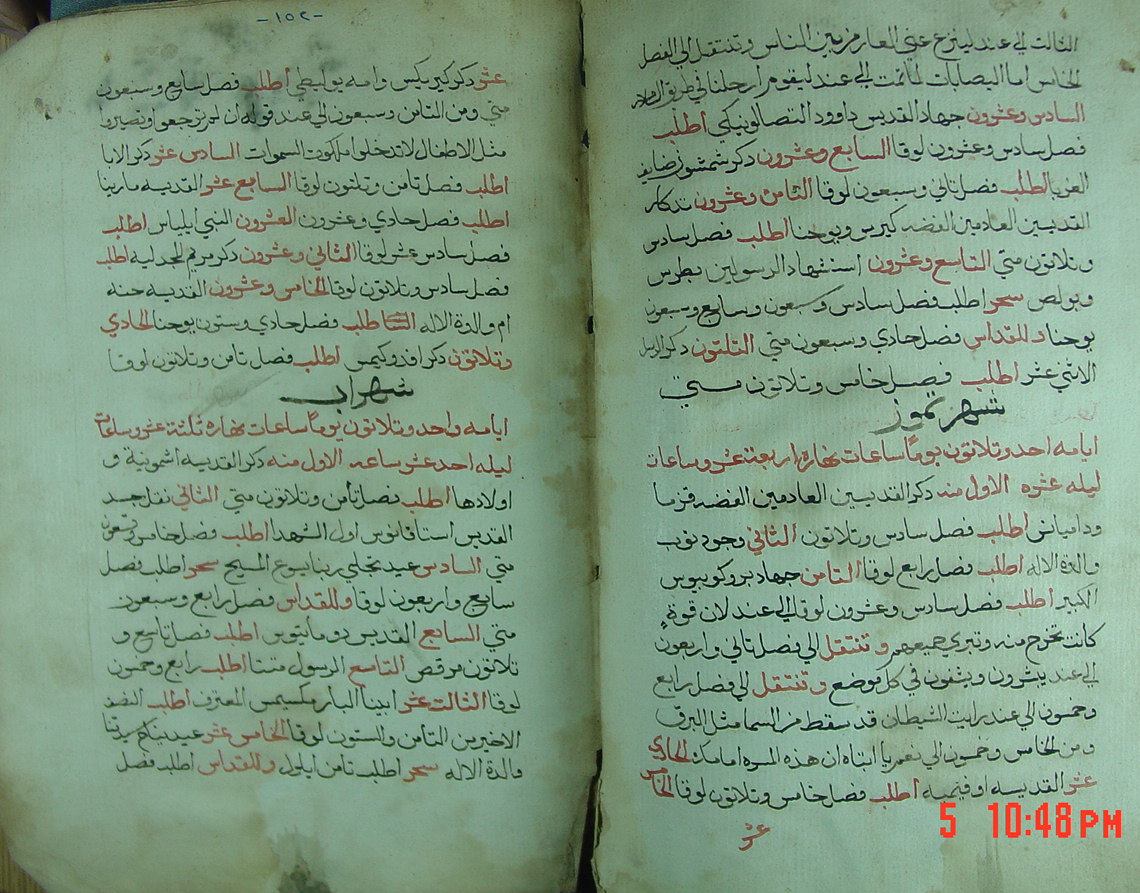 الثالث الي عند لينزع عني العار من بين الناس وتنتقل الي الفصل
الخامس اما اليصابات لما تمت الي عند ليقوم ارجلنا في طريق
السادس وعشرون جهاد القديس داوود التصالونيكي اطلب
فصل سادس وعشرون لوقا السابع وعشرون ذكر شمشون
الغربا اطلب فصل تاني وسبعون لوقا الثامن وعشرون تدكار
القديسين العادمين الفضه كيرس ويوحنا اطلب فصل سادس
وتلاتون متي التاسع وعشرون استشهاد الرسولين بطرس
وبولص سحر اطلب فصل سادس وسبعون وسابع وسبعون
يوحنا وللقداس فصل حادي وسبعون متي التلتون ذكر
الاثني عشر اطلب فصل خامس وتلاتون متي
شهر تموز
ايامه احد وتلاتون يومًا ساعات نهاره اربعة عشر وساعات
ليله عشره الاول منه ذكر القديسين العادمين الفضه قزما
ودميانس اطلب فصل سادس وتلاتون الثاني وجود توب
والدة الاله اطلب فصل رابع لوقا التامن جهاد بروكوبيوس
الكبير اطلب فصل سادس وعشرون لوقا الي عند لان قوة
كانت تخرج منه وتبري جميعهم وتنتقل الي فصل تاني واربعون
الي عند يبشرون ويشفون في كل موضع وتنتقل الي فصل رابع
وخمسون الي عند رايت الشيطان قد سقط من السما مثل البرق
ومن الخامس وخمسون الي نعم يا ابتاه ان هذه المسره امامك الحادي
عشر القديسه اوفيميه اطلب فصل خامس وتلاتون لوقا الخامس
عشر
-١٥٢-
عشر ذكر كيريكس وامه يوليطي اطلب فصل سابع وسبعون
متي ومن التامن وسبعون الي عند قوله ان لم ترجعوا وتصيروا
مثل الاطفال لا تدخلوا ملكوت السموات السادس عشر ذكر الابا
اطلب فصل تامن وتلتون لوقا السابع عشر القديسه مارينا
اطلب فصل حادي وعشرون العشرون النبي ايلياس اطلب
فصل سادس عشر لوقا الثاني وعشرون ذكر مريم المجدليه اطلب
فصل سادس وتلاتون لوقا الخامس وعشرون القديسه حنه
ام والدة الاله اطلب فصل حادي وستون يوحنا الحادي
وتلاتون ذكر افدوكيمس اطلب فصل تامن وتلاتون لوقا
شهر اب
ايامه واحد وتلاتون يومًا ساعات نهاره ثلثة عشر وساعات
ليله احد عشر ساعه الاول منه ذكر القديسه اشمونية و
اولادها اطلب فصل تامن وتلاتون متي الثاني نقل جسد
القديس استافانوس اول الشهدا اطلب فصل خامس وتسعون
متي السادس عيد تجلي ربنا يسوع المسيح سحر اطلب فصل
سابع واربعون لوقا وللقداس فصل رابع وسبعون
متي السابع القديس دوماتيوس اطلب فصل تاسع و
تلاتون مرقص التاسع الرسول متتا اطلب رابع وخمسون
لوقا الثالث عشر ابينا البار مكسيمس المعترف اطلب النصف
الاخير من التامن والستون لوقا الخامس عشر عيد نياح ستنا
والدة الاله سحر اطلب تامن ايلول وللقداس اطلب فصل
5 10:48 PM